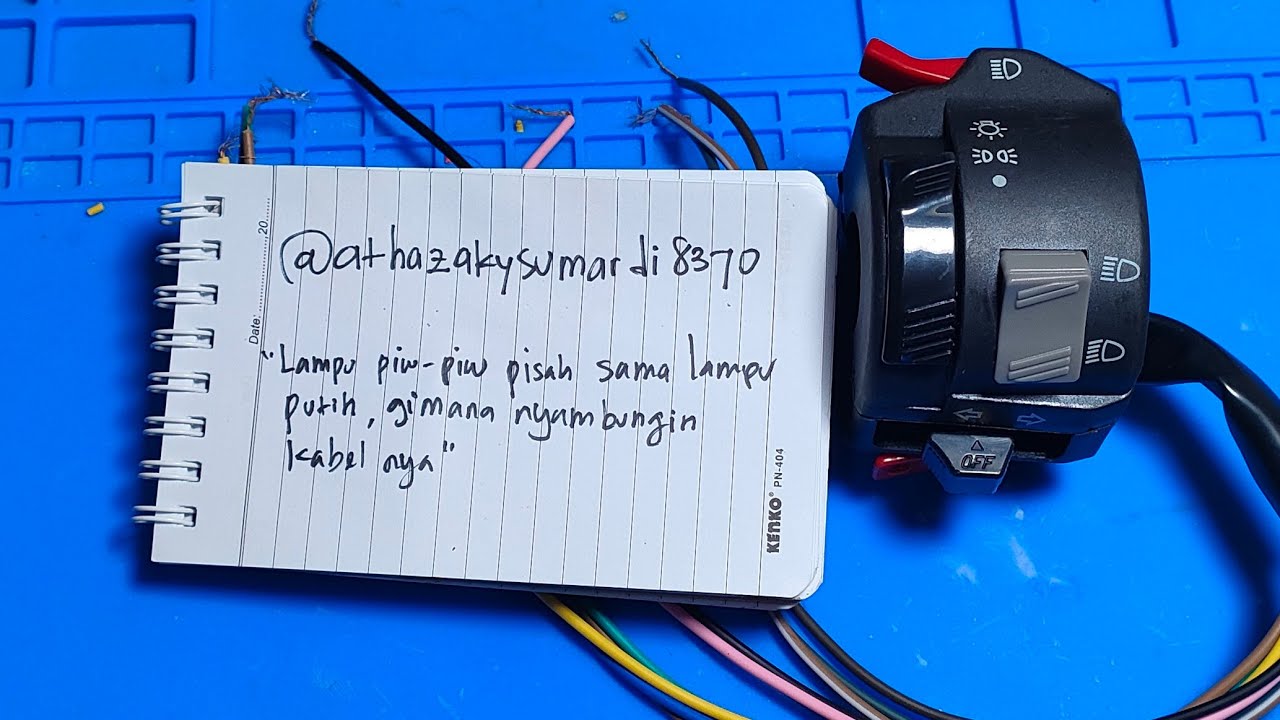 Date: ........... 20......
@athazakysumardi8370
"Lampu piw-piw pisah sama lampu
putih, gimana nyambungin
kabel nya"
KENKO® PN-404
OFF